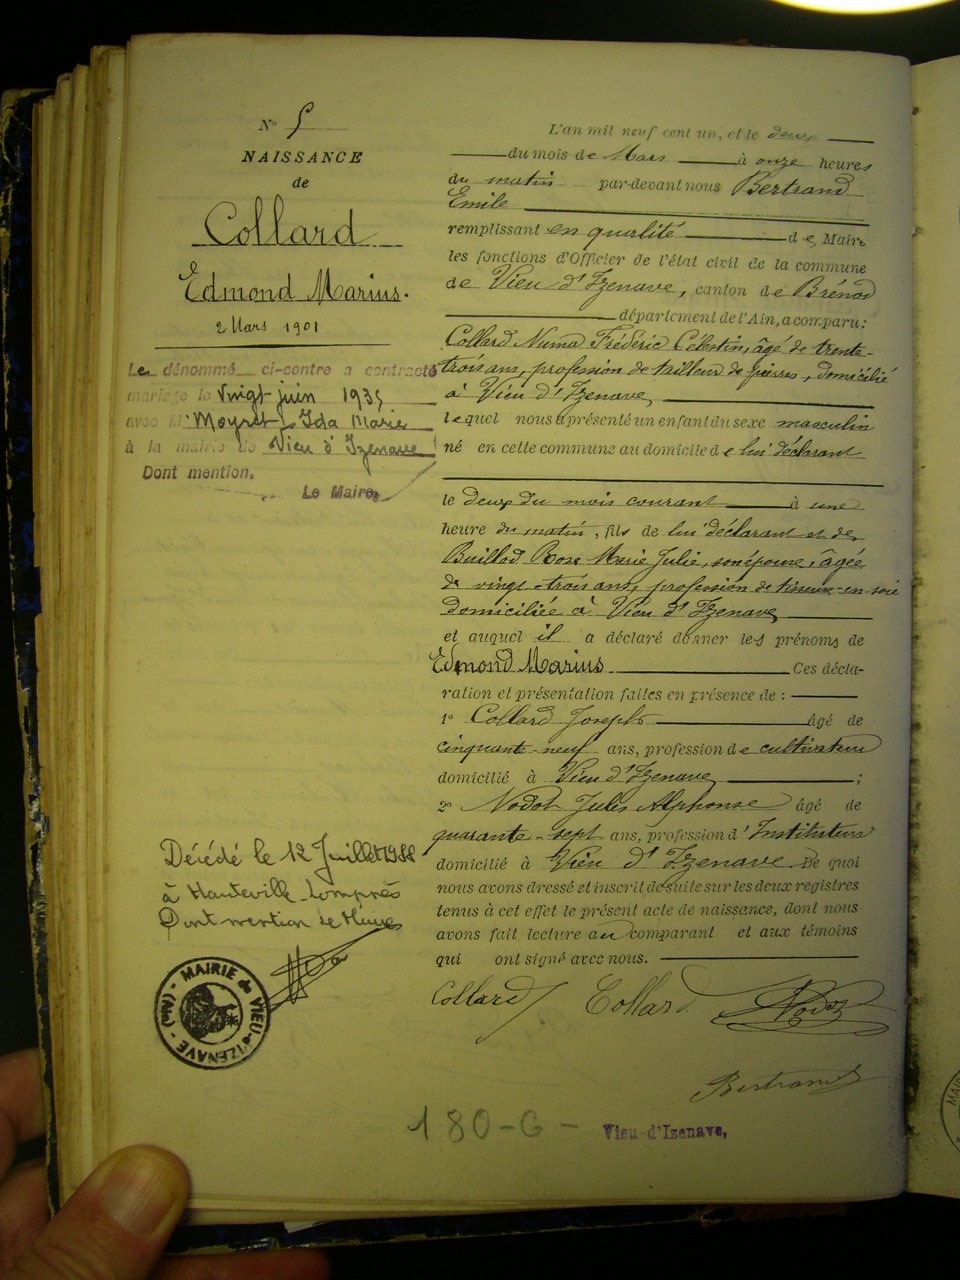 N° 5
NAISSANCE
de
Collard
Edmond Marius.
2 Mars 1901
Le dénommé ci-contre a contracté
mariage le vingt juin 1935
avec Mlle Moyret Ida Marie
à la mairie de Vieu d'Izenave
Dont mention.
Le Maire,
Décédé le 12 Juillet 1988
à Hauteville-Lompnès
Dont mention le Maire
MAIRIE de VIEU-d'IZENAVE - (Ain) -
L'an mil neuf cent un, et le deux
du mois de Mars à onze heures
du matin par-devant nous Bertrand
Emile
remplissant en qualité de Maire
les fonctions d'Officier de l'état civil de la commune
de Vieu d'Izenave, canton de Brénod
département de l'Ain, a comparu :
Collard Numa Frédéric Célestin, âgé de trente-
trois ans, profession de tailleur de pierres, domicilié
à Vieu d'Izenave
lequel nous a présenté un enfant du sexe masculin
né en cette commune au domicile de lui déclarant
le deux du mois courant à une
heure du matin, fils de lui déclarant et de
Buillod Rose Marie Julie, son épouse, âgée
de vingt-trois ans, profession de tisseuse-en-soie
domiciliée à Vieu d'Izenave
et auquel il a déclaré donner les prénoms de
Edmond Marius. Ces décla-
ration et présentation faites en présence de :
1° Collard Joseph âgé de
cinquante-neuf ans, profession de cultivateur
domicilié à Vieu d'Izenave ;
2° Nodot Jules Alphonse âgé de
quarante-sept ans, profession d'Instituteur
domicilié à Vieu d'Izenave. De quoi
nous avons dressé et inscrit de suite sur les deux registres
tenus à cet effet le présent acte de naissance, dont nous
avons fait lecture au comparant et aux témoins
qui ont signé avec nous.
Collard Collard Nodot
Bertrand
180-G- Vieu-d'Izenave,